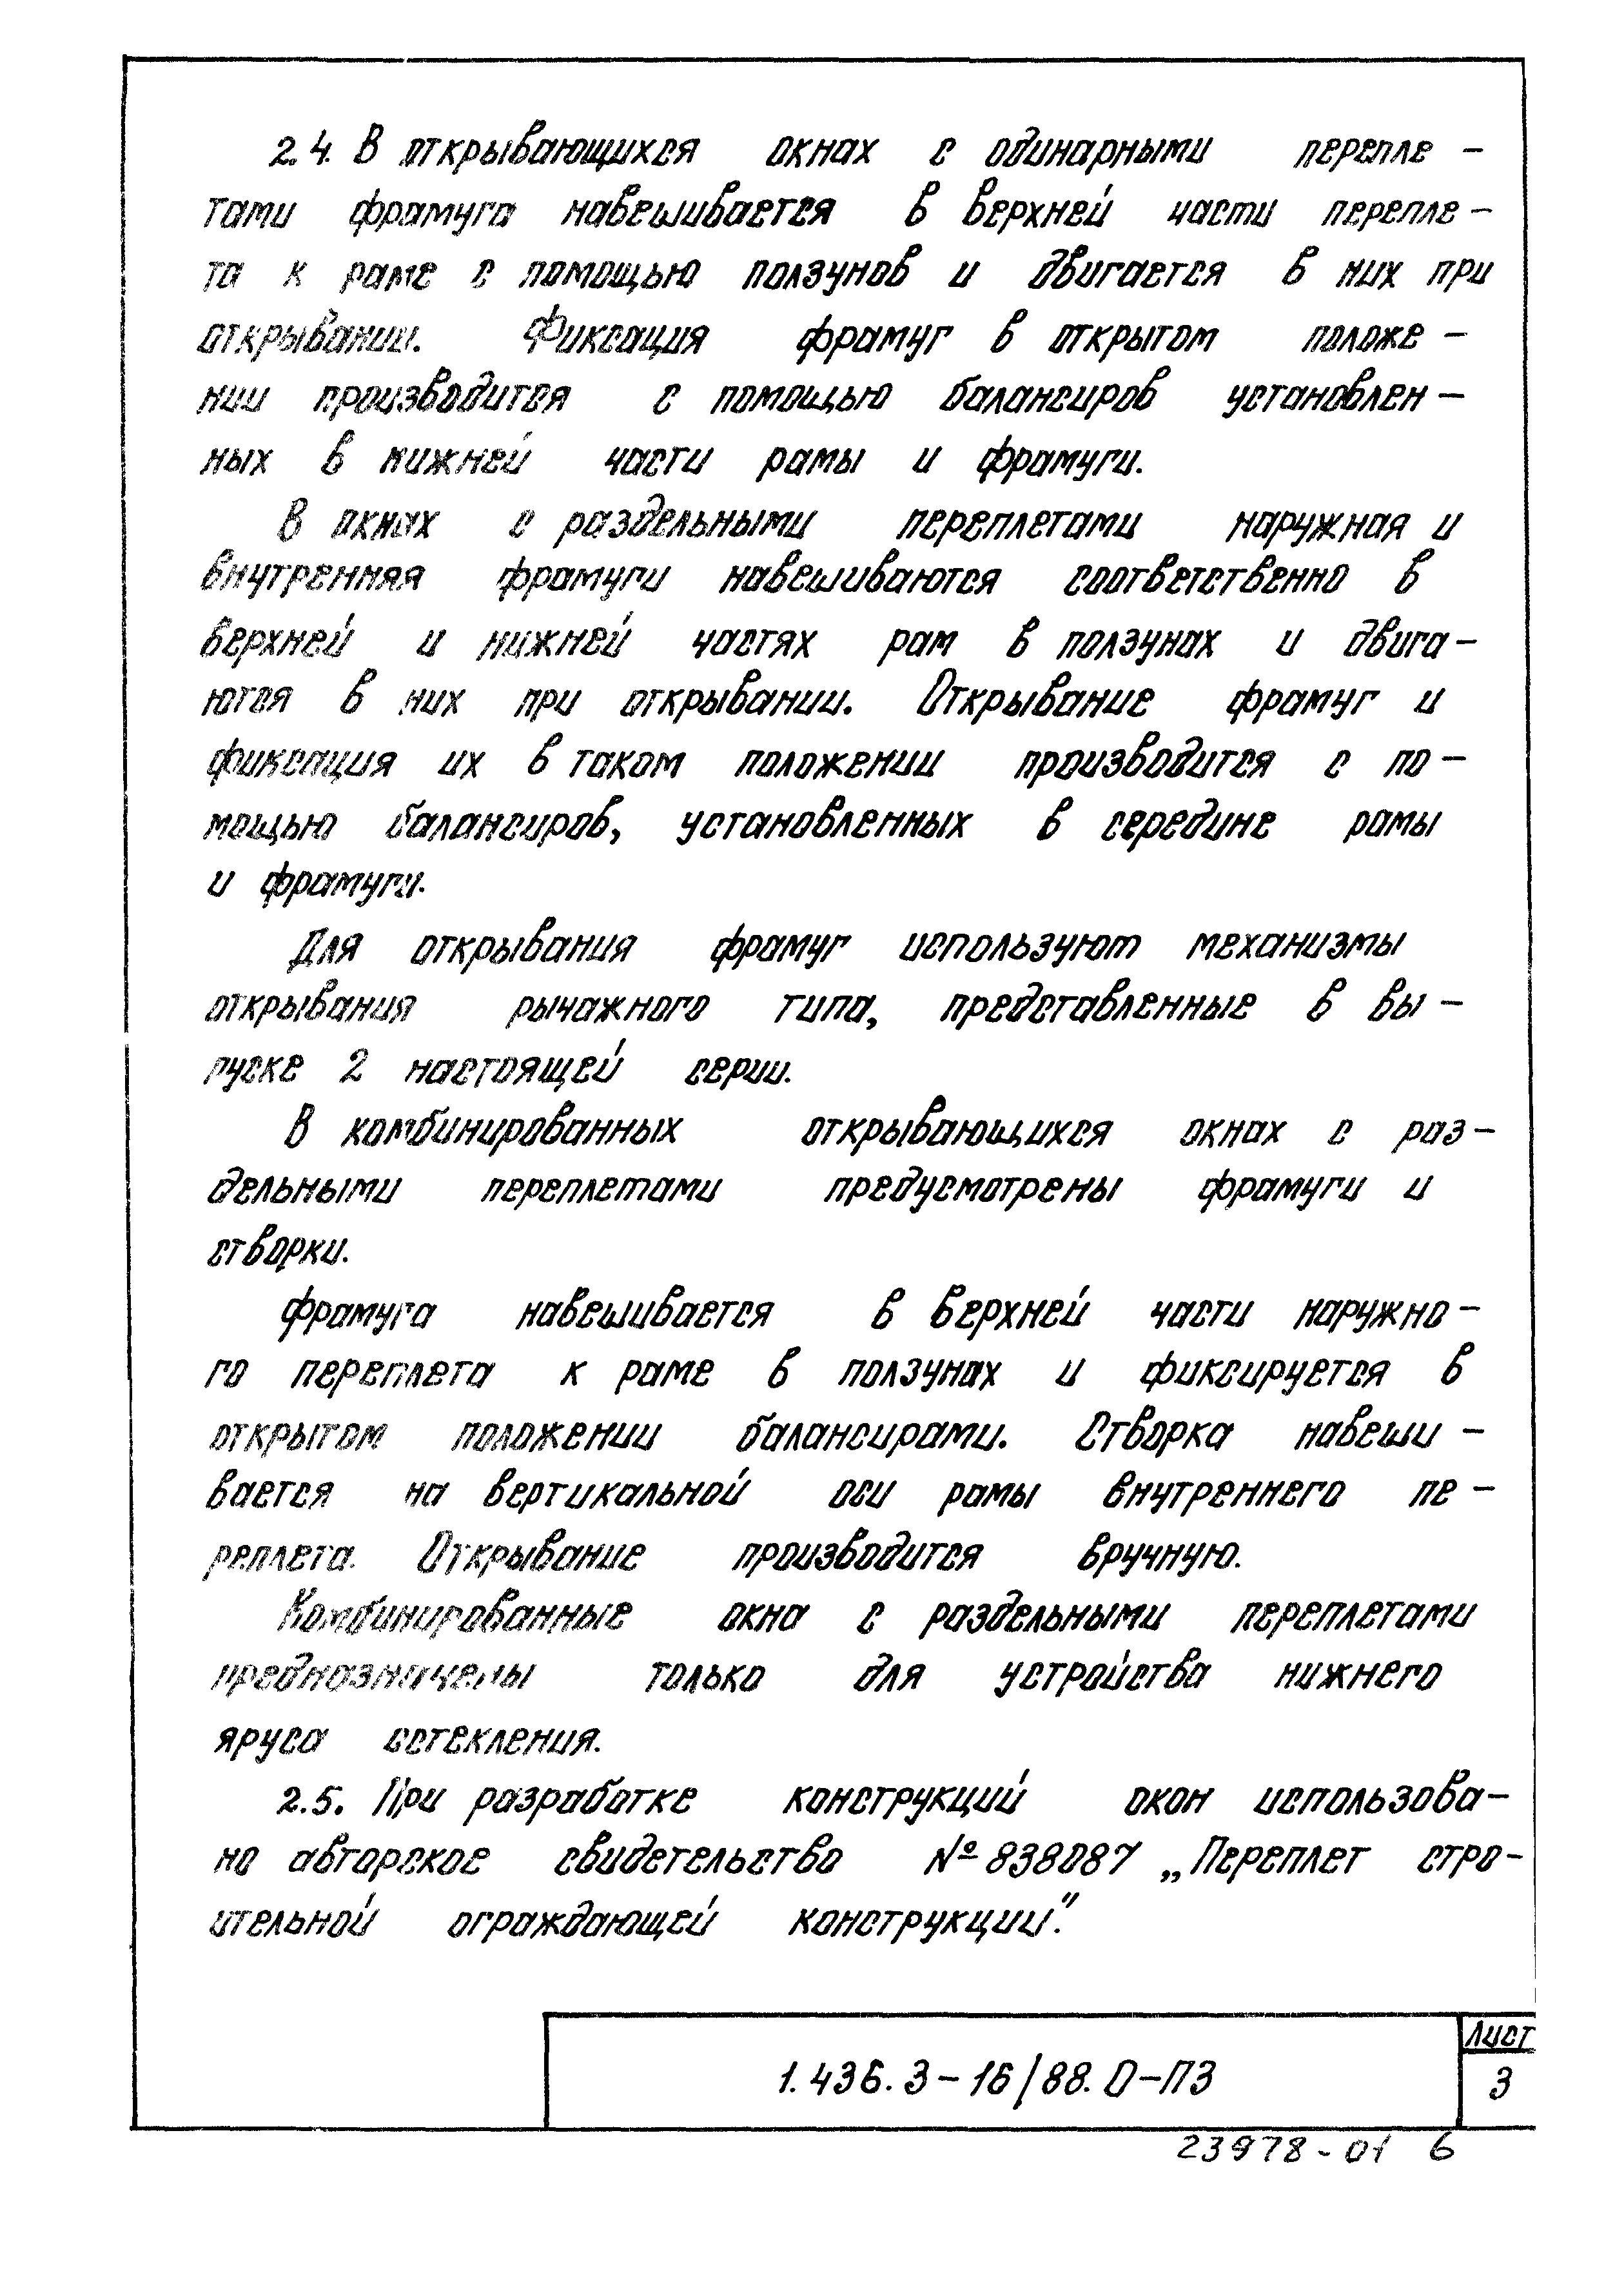 2.4. В открывающихся окнах с одинарными перепле-
тами фрамуга навешивается в верхней части перепле-
та к раме с помощью ползунов и двигается в них при
открывании. Фиксация фрамуг в открытом положе-
нии производится с помощью балансиров установлен-
ных в нижней части рамы и фрамуги.
В окнах с раздельными переплетами наружная и
внутренняя фрамуги навешиваются соответственно в
верхней и нижней частях рам в ползунах и двига-
ются в них при открывании. Открывание фрамуг и
фиксация их в таком положении производится с по-
мощью балансиров, установленных в середине рамы
и фрамуги.
Для открывания фрамуг используют механизмы
открывания рычажного типа, представленные в вы-
пуске 2 настоящей серии.
В комбинированных открывающихся окнах с раз-
дельными переплетами предусмотрены фрамуги и
створки.
Фрамуга навешивается в верхней части наружно-
го переплета к раме в ползунах и фиксируется в
открытом положении балансирами. Створка навеши-
вается на вертикальной оси рамы внутреннего пе-
реплета. Открывание производится вручную.
Комбинированные окна с раздельными переплетами
предназначены только для устройства нижнего
яруса остекления.
2.5. При разработке конструкций окон использова-
но авторское свидетельство № 838087 „Переплет стро-
ительной ограждающей конструкции."
1.436.3-16/88.0-ПЗ
Лист
3
23978-01 6